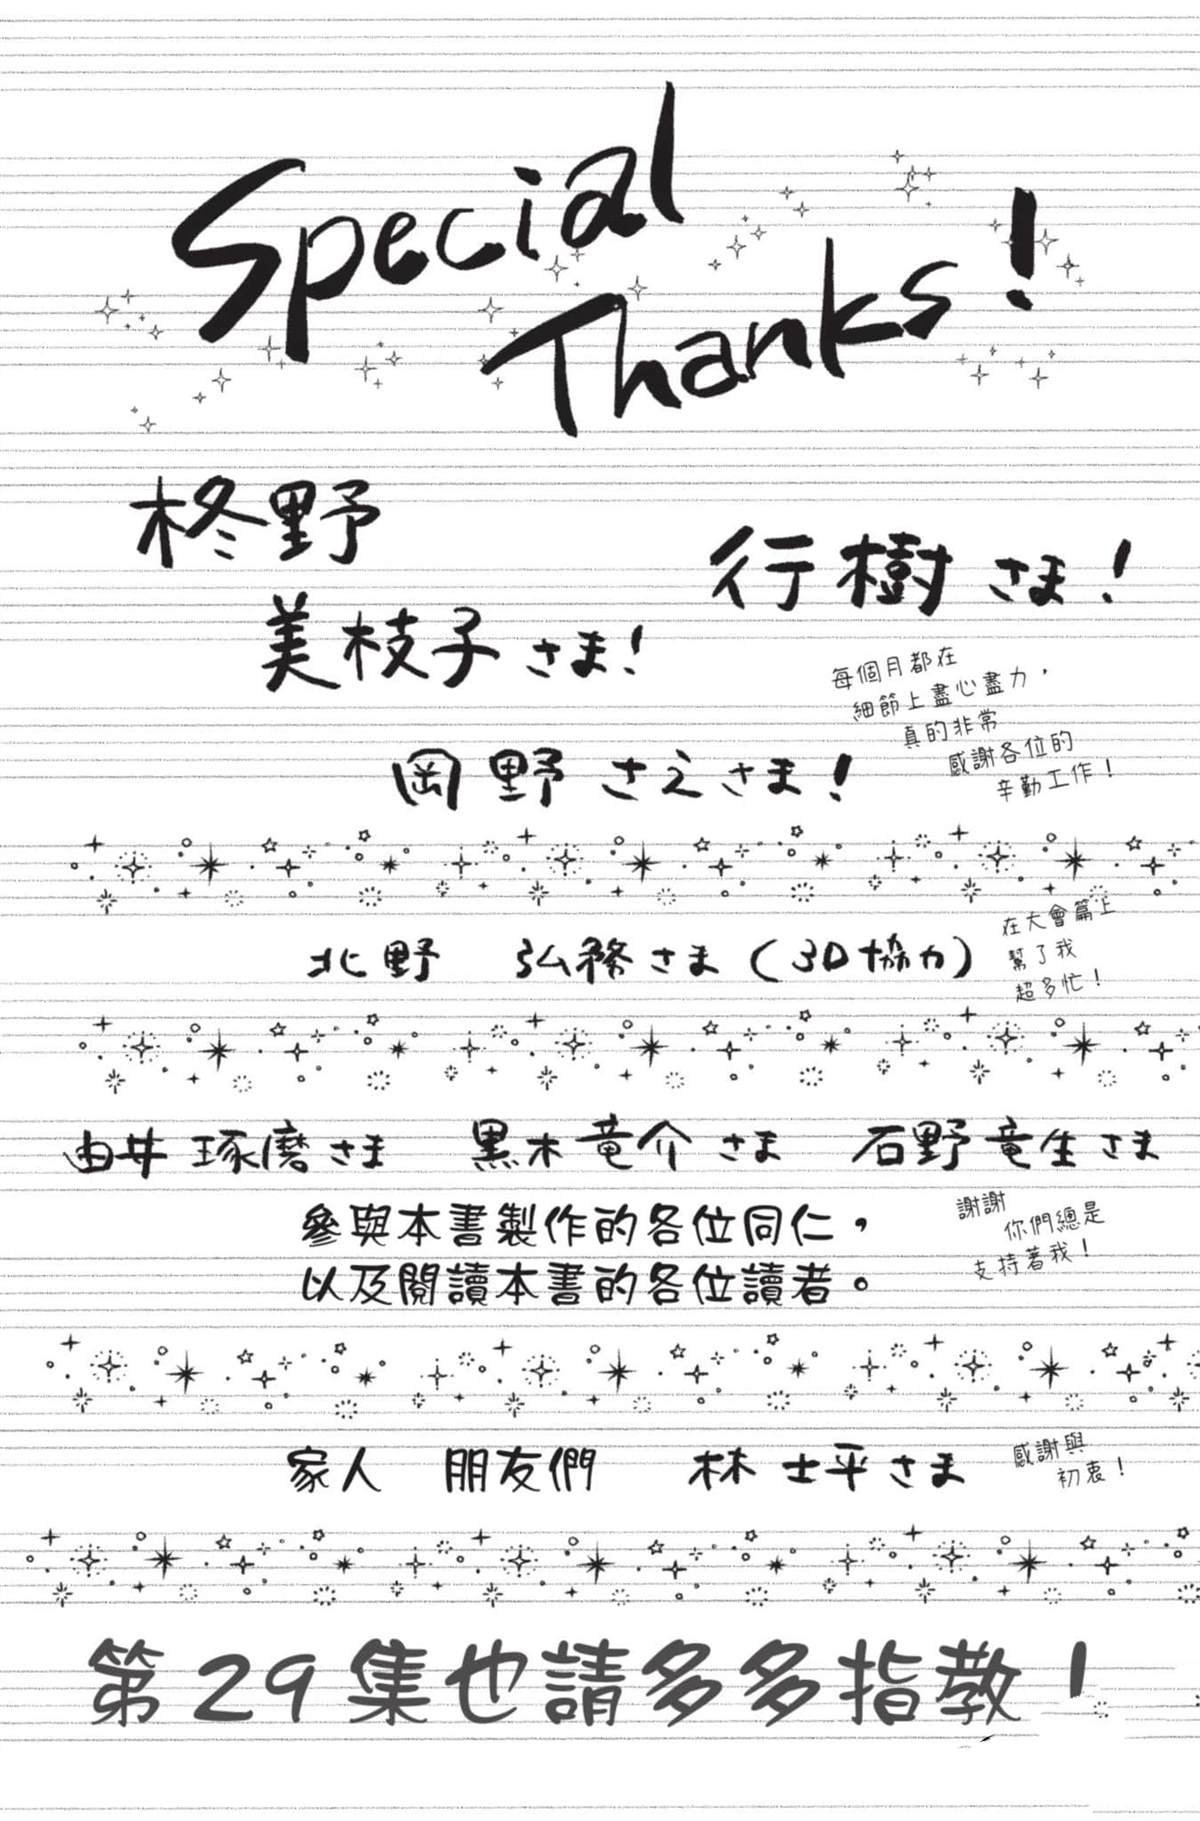 Special
Thanks!
柊野
美枝子さま!
行樹さま!
岡野さえさま!
每個月都在
細節上盡心盡力，
真的非常
感謝各位的
辛勤工作！
北野　弘務さま（3D協力）
在大會篇上
幫了我
超多忙！
由井 琢磨さま　黒木竜介さま　石野竜生さま
參與本書製作的各位同仁，
以及閱讀本書的各位讀者。
謝謝
你們總是
支持著我！
家人　朋友們　林士平さま
感謝與
初衷！
第29集也請多多指教！